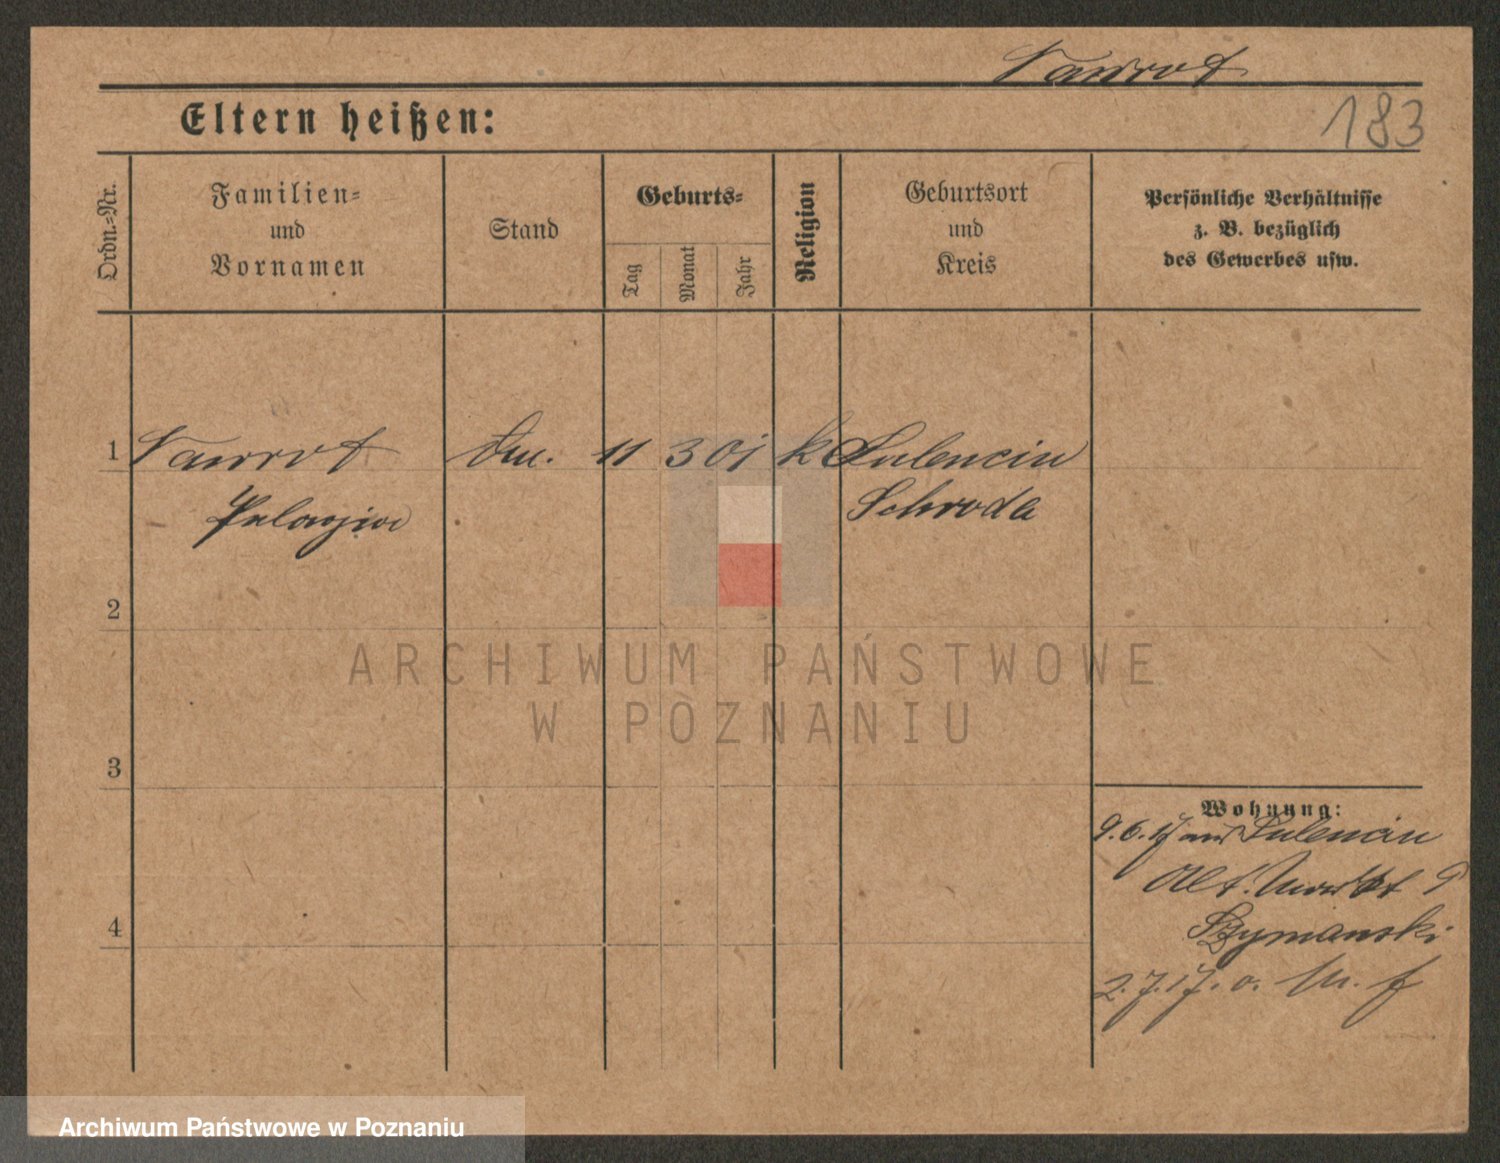 Nawrot
Eltern heißen:
183
Ordn.-Nr.
Familien-
und
Vornamen
Stand
Geburts-
Tag
Monat
Jahr
Religion
Geburtsort
und
Kreis
Persönliche Verhältnisse
z. B. bezüglich
des Gewerbes usw.
1 Nawrot 11 3 01 k Sulencin
Pelagia Schroda
2
ARCHIWUM PAŃSTWOWE
W POZNANIU
3
Wohnung:
9.6.17 aus Sulencin
Alt. Markt 9
Szymanski
4
2.7.17. o.
Archiwum Państwowe w Poznaniu